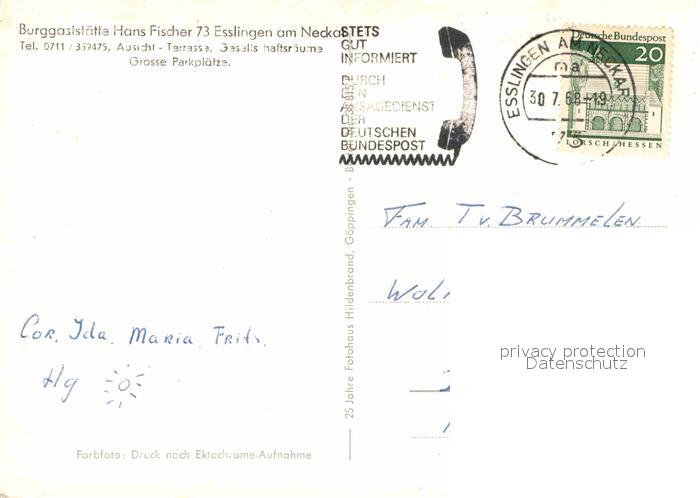 Burggaststätte Hans Fischer 73 Esslingen am Neckar
Tel. 0711/359475, Aussicht-Terrasse, Gesellschaftsräume
Grosse Parkplätze.
STETS
GUT
INFORMIERT
DURCH
DEN
ANSAGEDIENST
DER
DEUTSCHEN
BUNDESPOST
ESSLINGEN AM NECKAR
ma
30.7.68-19
73
Deutsche Bundespost
20
LORSCH/HESSEN
Fam. Tv. Brummelen
Wol
Cor. Ida. Maria. Frits.
Hg
25 Jahre Fotohaus Hildenbrand, Göppingen
Farbfoto: Druck nach Ektachrome-Aufnahme
privacy protection
Datenschutz